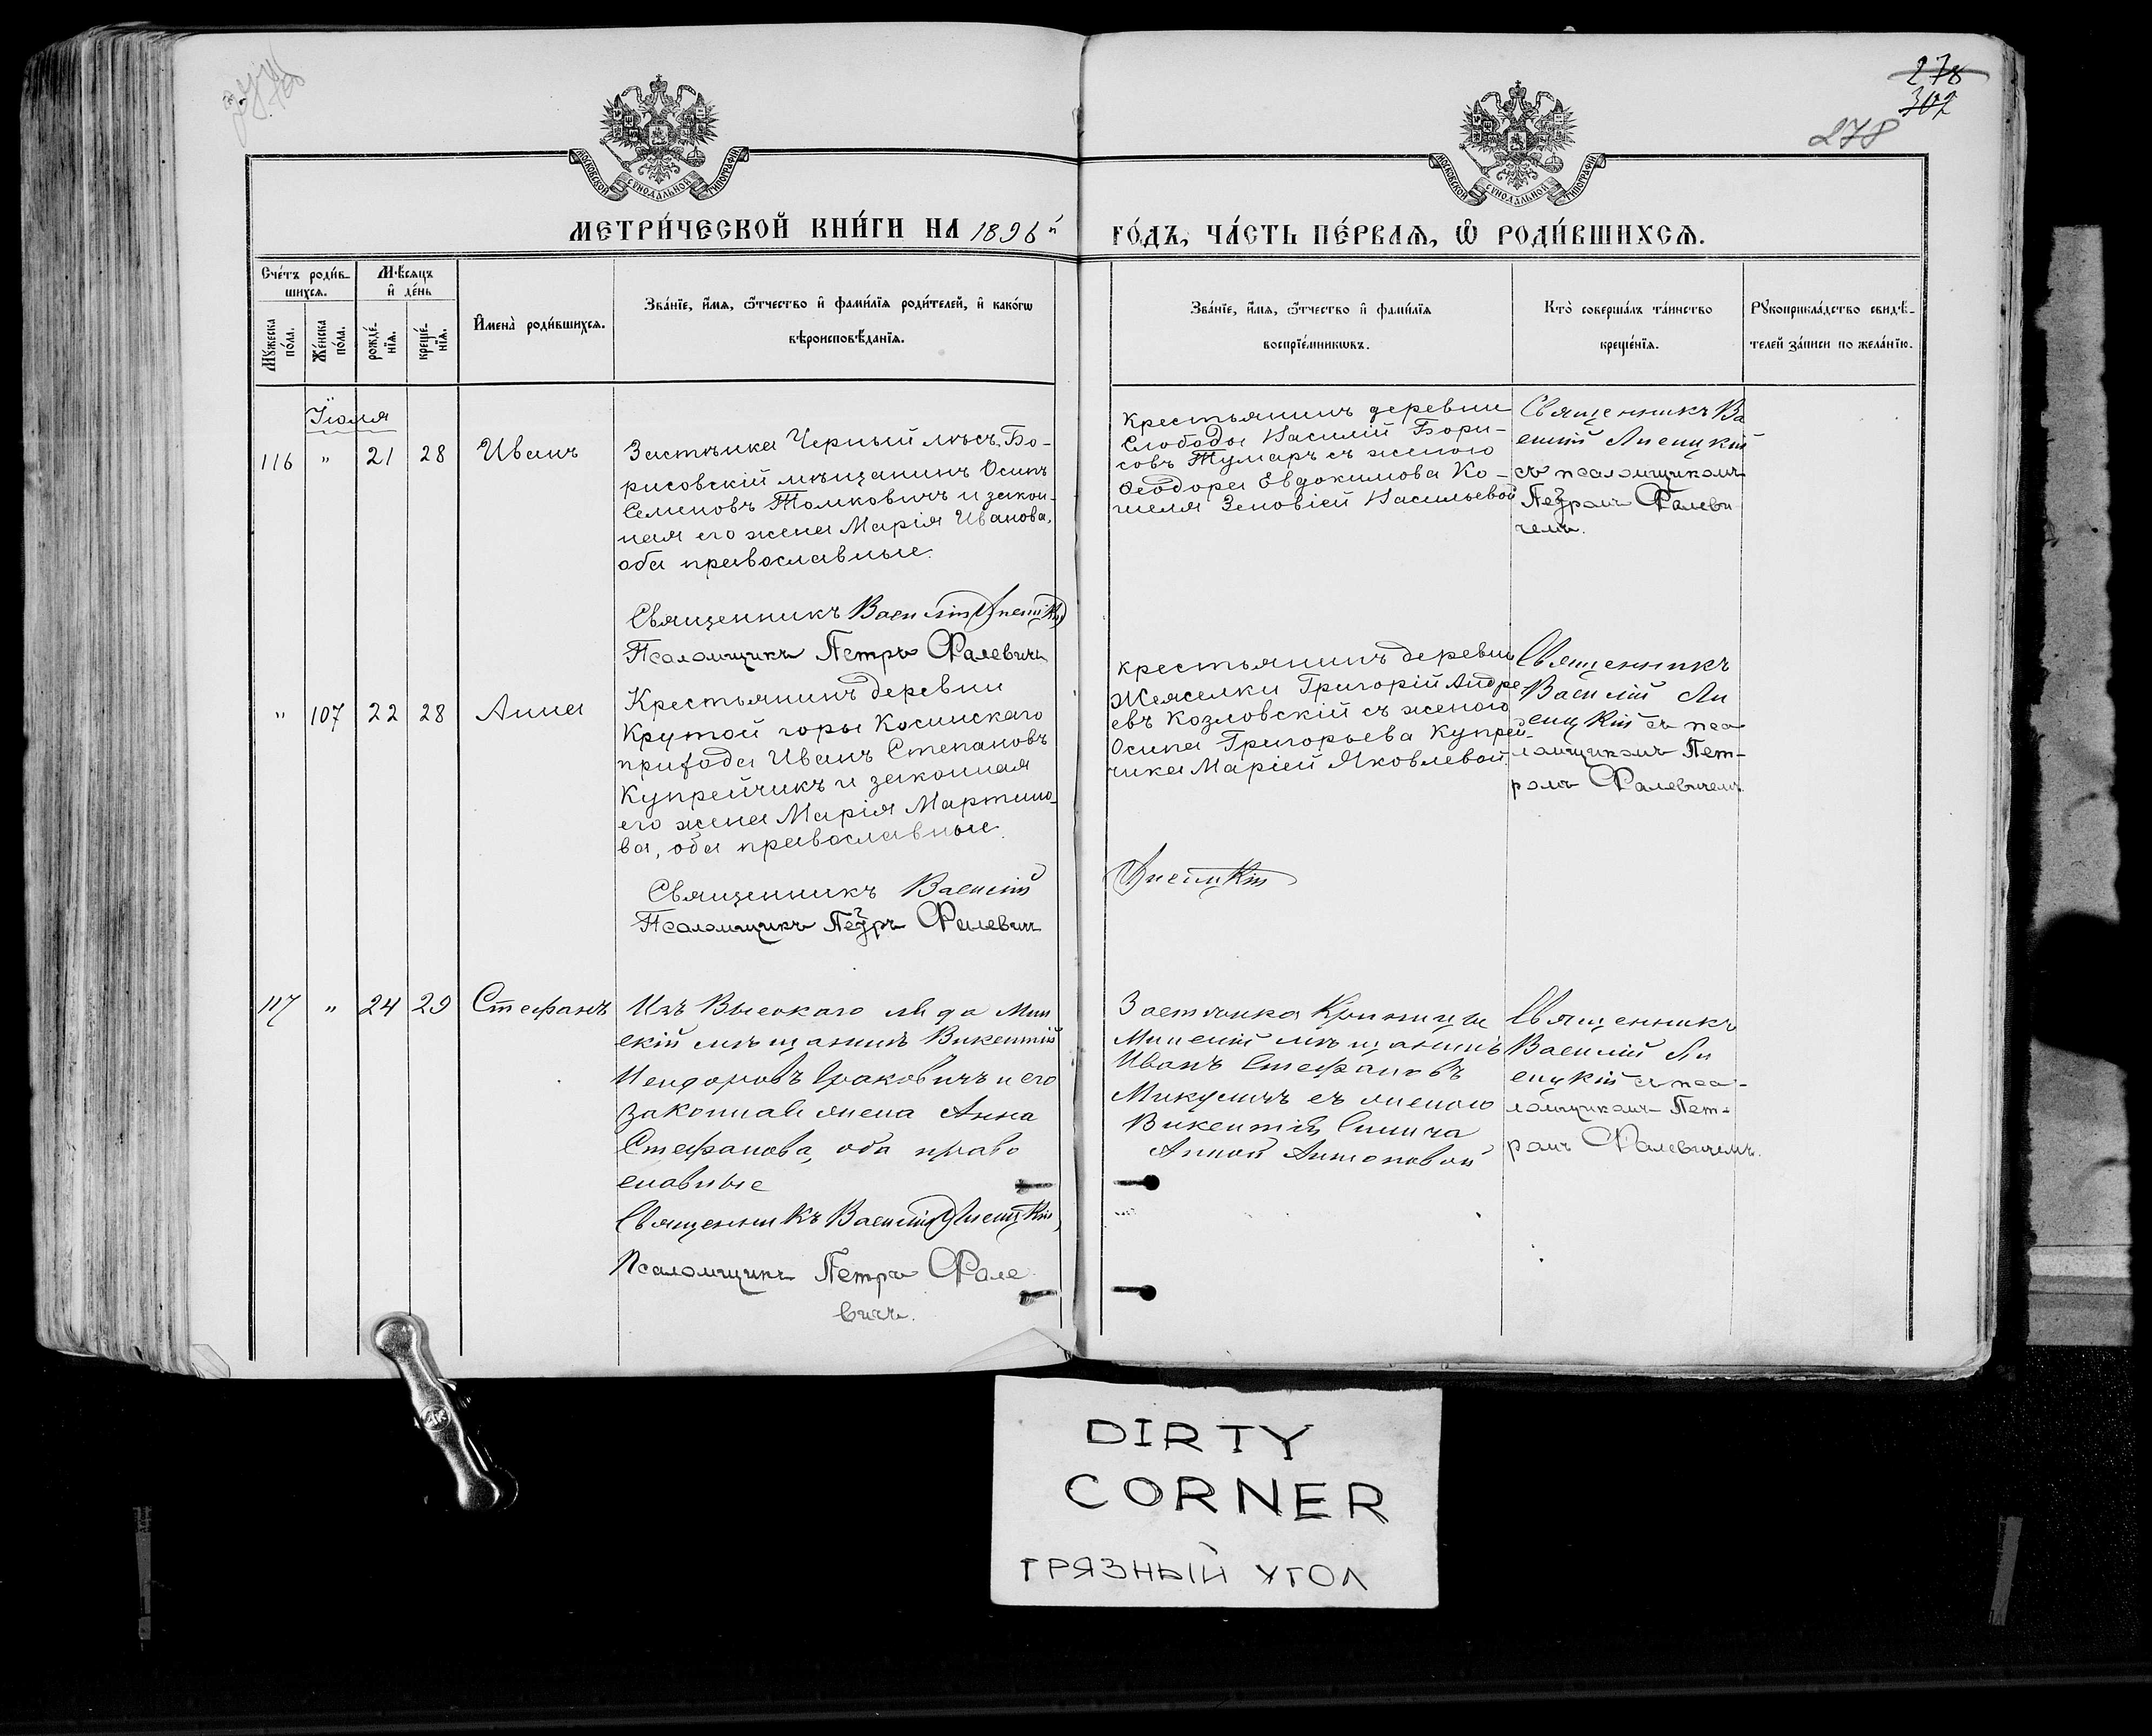 278
302
278
МОСКОВСКОЙ СѴНОДАЛЬНОЙ ТИПОГРАФІИ
МОСКОВСКОЙ СѴНОДАЛЬНОЙ ТИПОГРАФІИ
МЕТРИ́ЧЕСКОЙ КНИ́ГИ НА 1896й
ГО́ДЪ, ЧА́СТЬ ПЕ́РВАЯ, Ѿ РОДИ́ВШИХСЯ.
Сче́тъ роди́в-
шихся.
Мѣ́сяцъ
и де́нь
Му́жеска
по́ла.
Же́нска
по́ла.
рожде́-
нїя.
креще́-
нїя.
Имена̀ роди́вшихся.
Зва́нїе, и́мя, ѻ́тчество и фами́лїя роди́телей, и како́гѡ
вѣроисповѣ́данїя.
Зва́нїе, и́мя, ѻ́тчество и фами́лїя
воспрїе́мникѡвъ.
Кто̀ соверша́лъ та́инство
креще́нїя.
Рукоприкла́дство свидѣ́-
телей за́писи по жела́нїю.
Іюля
116 " 21 28 Иванъ
Застѣнка Черный лѣсъ, Бо-
рисовскій мѣщанинъ Осипъ
Семеновъ Томковичъ и закон-
ная его жена Марія Иванова,
оба православные.
Священникъ Василій Лисицкій
Псаломщикъ Петръ Фалевичъ
Крестьянинъ деревни
Слободы Василій Бори-
совъ Тумаръ съ женою
Ѳеодора Евдокимова Ко-
шеля Зеновіей Васильевой
Священникъ Ва
силій
съ псаломщикомъ
Петромъ Фалеви
чемъ.
" 107 22 28 Анна
Крестьянинъ деревни
Крутой горы Косинскаго
прихода Иванъ Степановъ
Купрейчикъ и законная
его жена Марія Мартино-
ва, оба православные.
Священникъ Василій
Псаломщикъ Петръ Фалевичъ
крестьянинъ деревни
Григорій Андре
евъ Козловскій съ женою
Осипа Григорьева Купрей-
чика Маріей Яковлевой
Священникъ
Василій
съ пса
ломщикомъ Пет-
ромъ Фалевичемъ
117 " 24 29 Стефанъ
Изъ Высокаго ляда Мин
скій мѣщанинъ Викентій
и его
законная жена Анна
Стефанова, оба право
славные
Священникъ Василій
Псаломщикъ Петръ Фале
вичъ.
Застѣнка Криницы
Минскій мѣщанинъ
Иванъ Стефановъ
Микуличъ съ женою
Викентія
Анной Антоновой
Священникъ
Василій
съ пса-
ломщикомъ Пет-
ромъ Фалевичемъ.
DIRTY
CORNER
ГРЯЗНЫЙ УГОЛ